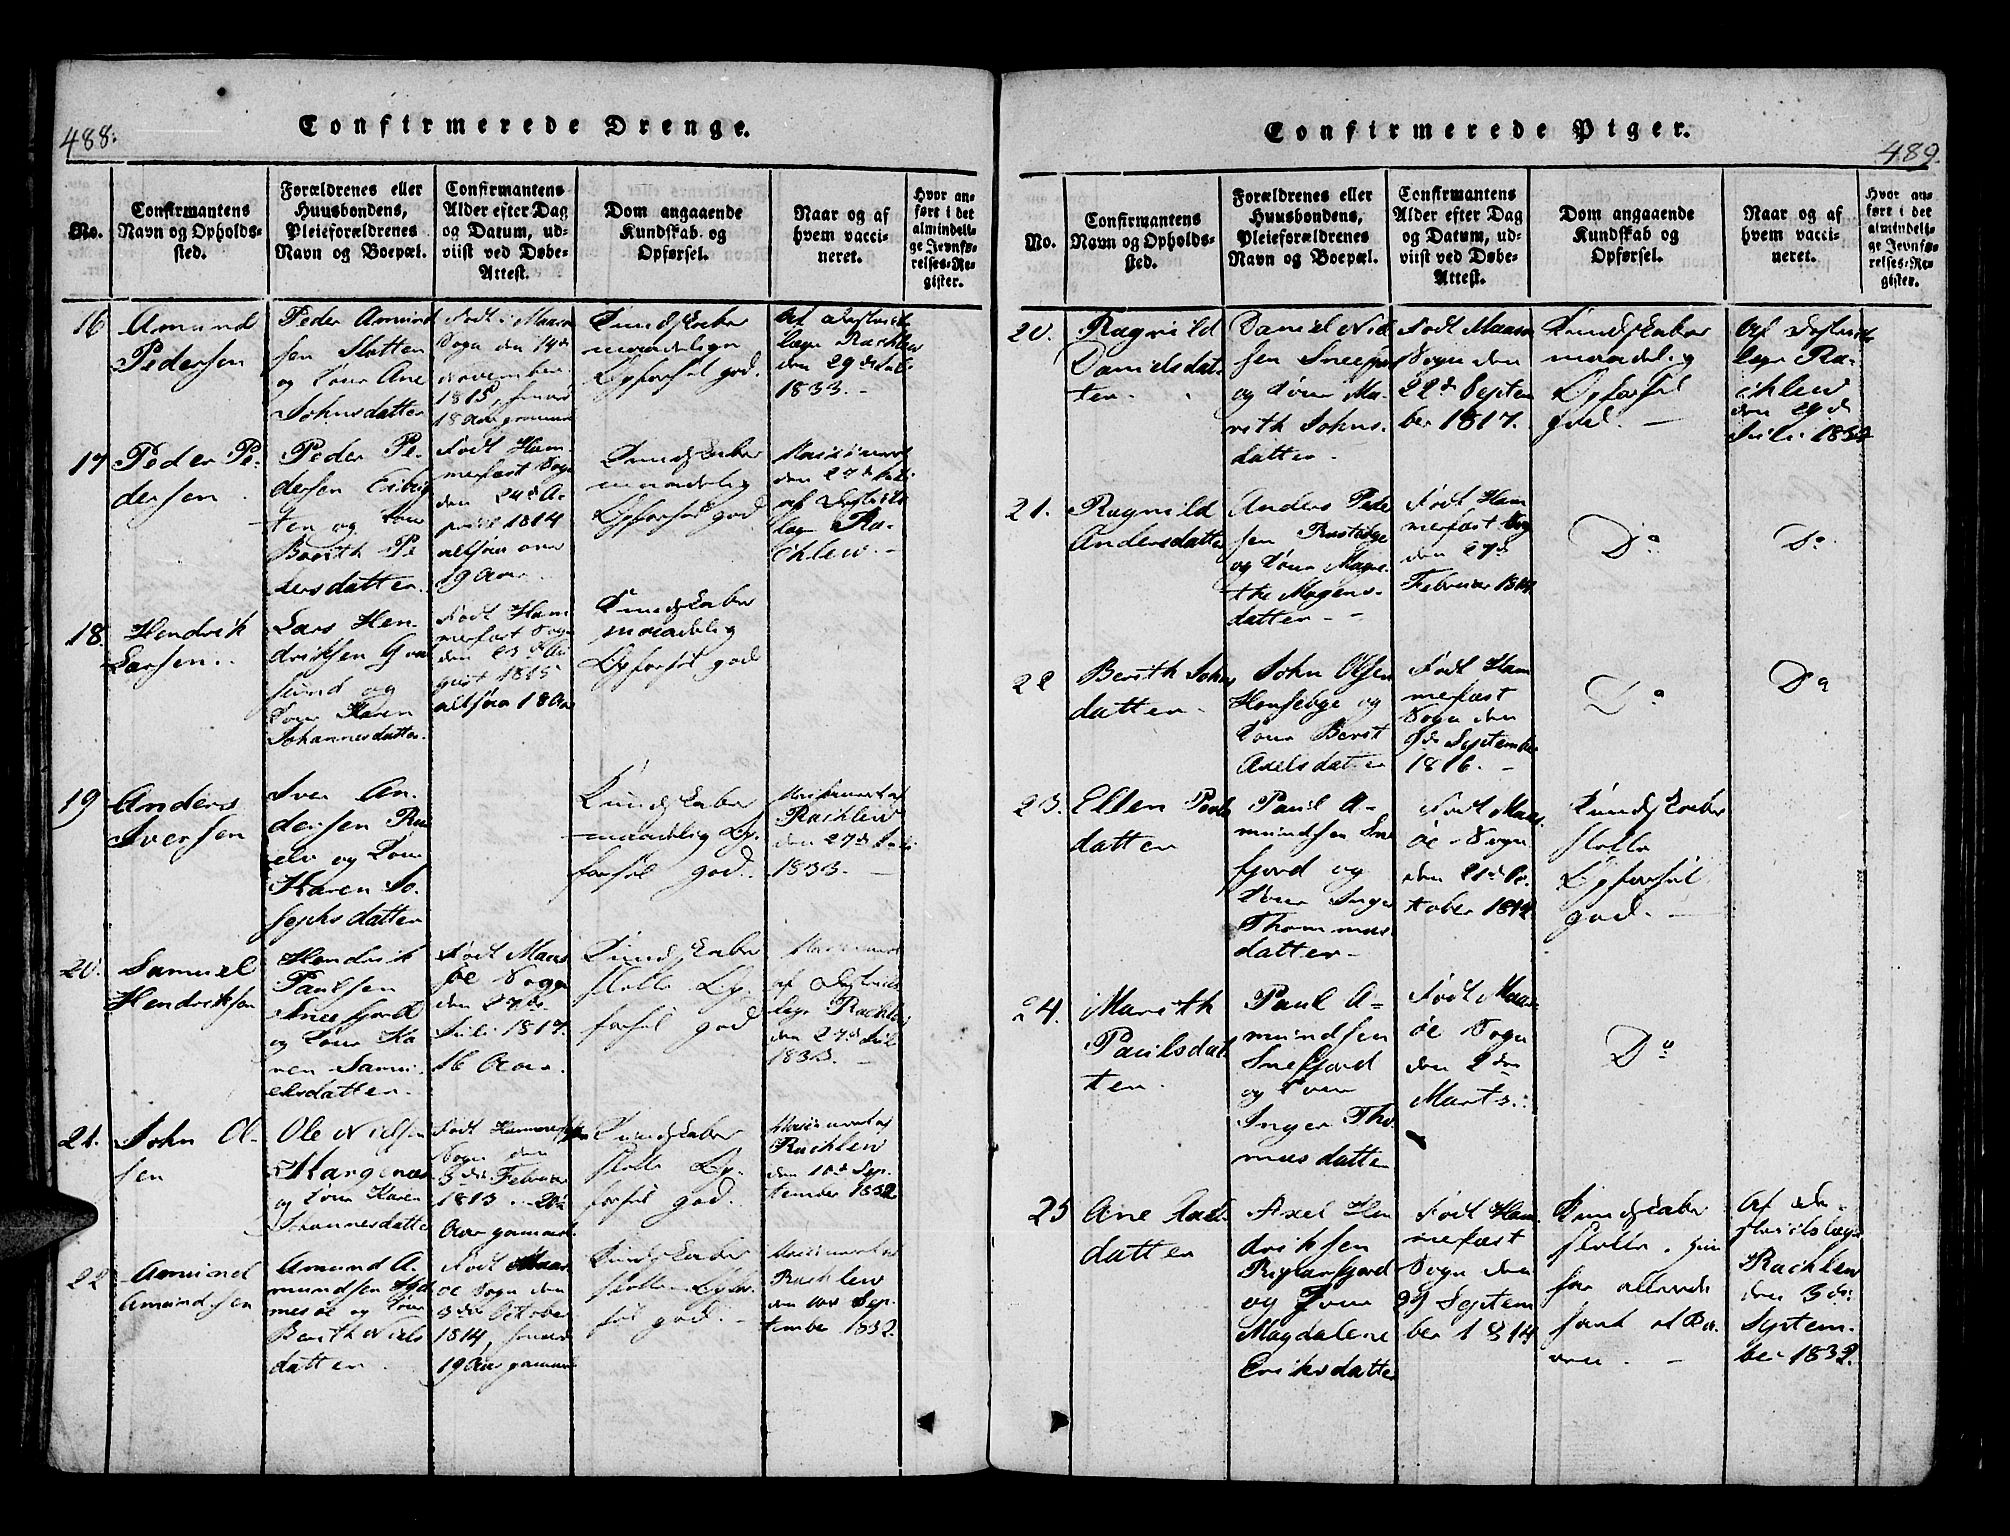 488.
Confirmerede Drenge.
No.
Confirmantens
Navn og Opholds-
sted.
Forældrenes eller
Huusbondens,
Pleieforældrenes
Navn og Boepæl.
Confirmantens
Alder efter Dag
og Datum, ud-
viist ved Døbe-
Attest.
Dom angaaende
Kundskab og
Opførsel.
Naar og af
hvem vacci-
neret.
Hvor an-
ført i det
almindeli-
ge Jevnfø-
relses-Re-
gister.
16
Amund
Pedersen
Peder Amund
sen Slotten
og Kone Ane
Johnsdatter
Født i Maasø
Sogn den 14de
November
1815,
18 Aar gammel
Kundskaber
maadelige
Opførsel god.
Af Distrikts
læge Rachlew
den 29de Juli
1833.
17
Peder Pe-
dersen
Peder Pe-
dersen
ten og Kone
Berith Pe
dersdatter.
Født Ham
merfest Sogn
den 24de A-
pril 1814
altsaa over
19 Aar.
Kundskaber
maadelig
Opførsel god
Vaccineret
den 27de Juli
af Distrikts
læge Ra-
chlew.
18.
Hendrik
Larsen.
Lars Hen
driksen
sund og
Kone Karen
Johannesdatter.
Født Ham
merfest Sogn
den 23de Au
gust 1815
altsaa 18 Aar
Kundskaber
maadelig
Opførsel god
19
Anders
Iversen
Iver An
dersen
elv og Kone
Karen Jo-
sephsdatter
Kundskaber
maadelig Op-
førsel god.
Vaccineret af
Rachlew
den 27de Juli
1833.
20.
Samuel
Hendriksen
Hendrik
Paulsen
Snefjord
og Kone Ka
ren Samu
elsdatter.
Født Maas
øe Sogn
den 27de
Juli 1817.
16 Aar.
Kundskaber
slette Op-
førsel god
Vaccineret
af Distrikts
læge Rachlew
den 27de Juli
1833.
21.
John Ol-
sen
Ole Nielsen
og Kone Karen
Johannesdatter
Født Hammerfest
Sogn den
3de Februar
1813. 20
Aar gammel
Kundskaber
slette Op-
førsel god.
Vaccineret af
Rachlew
den 10de Sep-
tember 1832
22
Amund
Amundsen
Amund A-
mundsen
og Kone
Berith Niels
datter.
Født Maas
øe Sogn den
3de October
1814,
19 Aar gammel
Kundskaber
slette Opfør
sel god.
Vaccineret af
Rachlew
den 10de Sep-
tember 1832.
489.
Confirmerede Piger.
No.
Confirmantens
Navn og Opholds-
sted.
Forældrenes eller
Huusbondens,
Pleieforældrenes
Navn og Boepæl.
Confirmantens
Alder efter Dag
og Datum, ud-
viist ved Døbe-
Attest.
Dom angaaende
Kundskab og
Opførsel.
Naar og af
hvem vacci-
neret.
Hvor an-
ført i det
almindeli-
ge Jevnfø-
relses-Re-
gister.
20.
Ragnild
Danielsdat-
ter.
Daniel Niel
sen
og Kone Ma-
rith Johns-
datter
Født Maasø
Sogn den
22de Septem
ber 1817.
Kundskaber
maadelig
Opførsel
god.
Af Distrikts
læge Ra-
chlew
den 29de
Juli 1833
21.
Ragnild
Andersdatter
Anders Peder
sen
og Kone Magre-
the Mogens-
datter
Født Ham
merfest Sogn
den 27de
Februar 1814.
Do
Do
22
Berith Johns
datter.
John Olsen
og
Kone Berit
Axelsdatter
Født Ham
merfest
Sogn den
9de September
1816.
Do
Do
23.
Ellen Pauls
datter
Paul A-
mundsen Sne
fjord og
Kone Inger
Thommas
datter.
Født Maas-
øe Sogn
den 21de Oc
tober 1814.
Kundskaber
slette
Opførsel
god.
24.
Marith
Paulsdat
ter.
Paul A-
mundsen
Snefjord
og Kone
Inger Tho
masdatter
Født Maas-
øe Sogn
den 2den
Marts.
Do
25
Ane Axels
datter
Axel Hen
driksen
og Kone
Magdalene
Eriksdatter
Født Ham
merfest
Sogn den
29 Septem
ber 1814
Kundskaber
slette.
Af Di-
strictslæge
Rachlew
den 3de
Septem-
ber 1832.